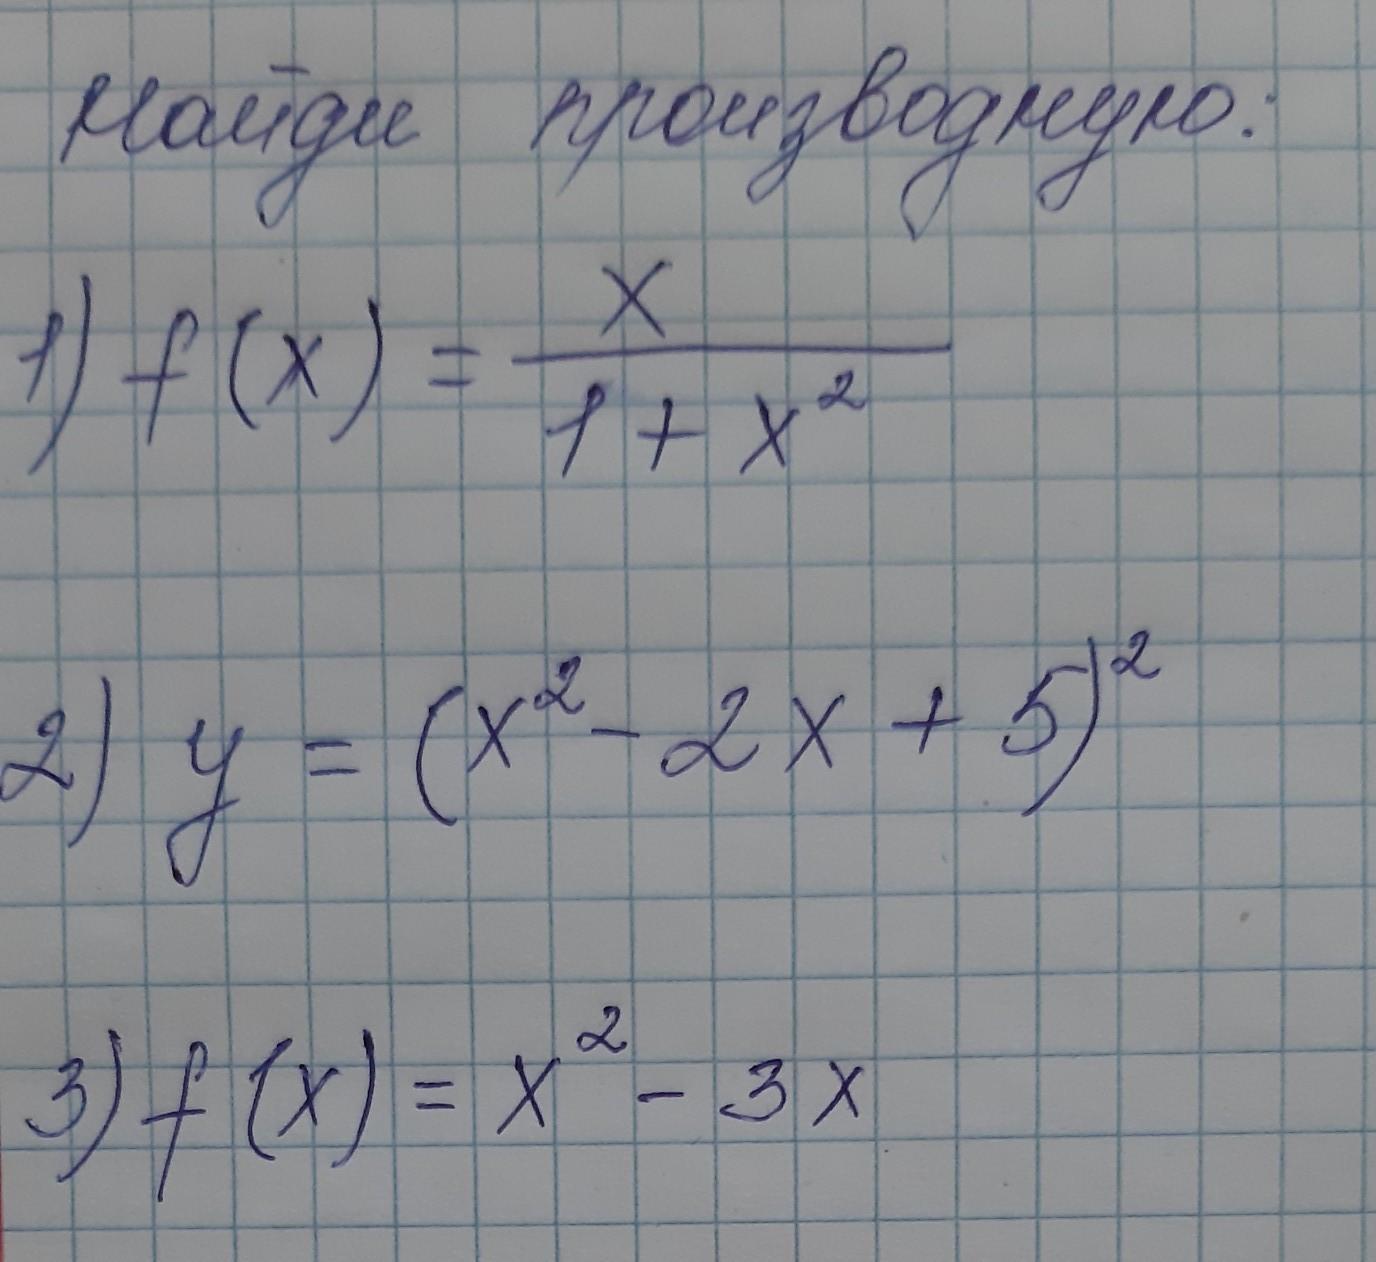 Найди производную:
1) f(x) = x / 1 + x²
2) y = (x² - 2x + 5)²
3) f(x) = x² - 3x